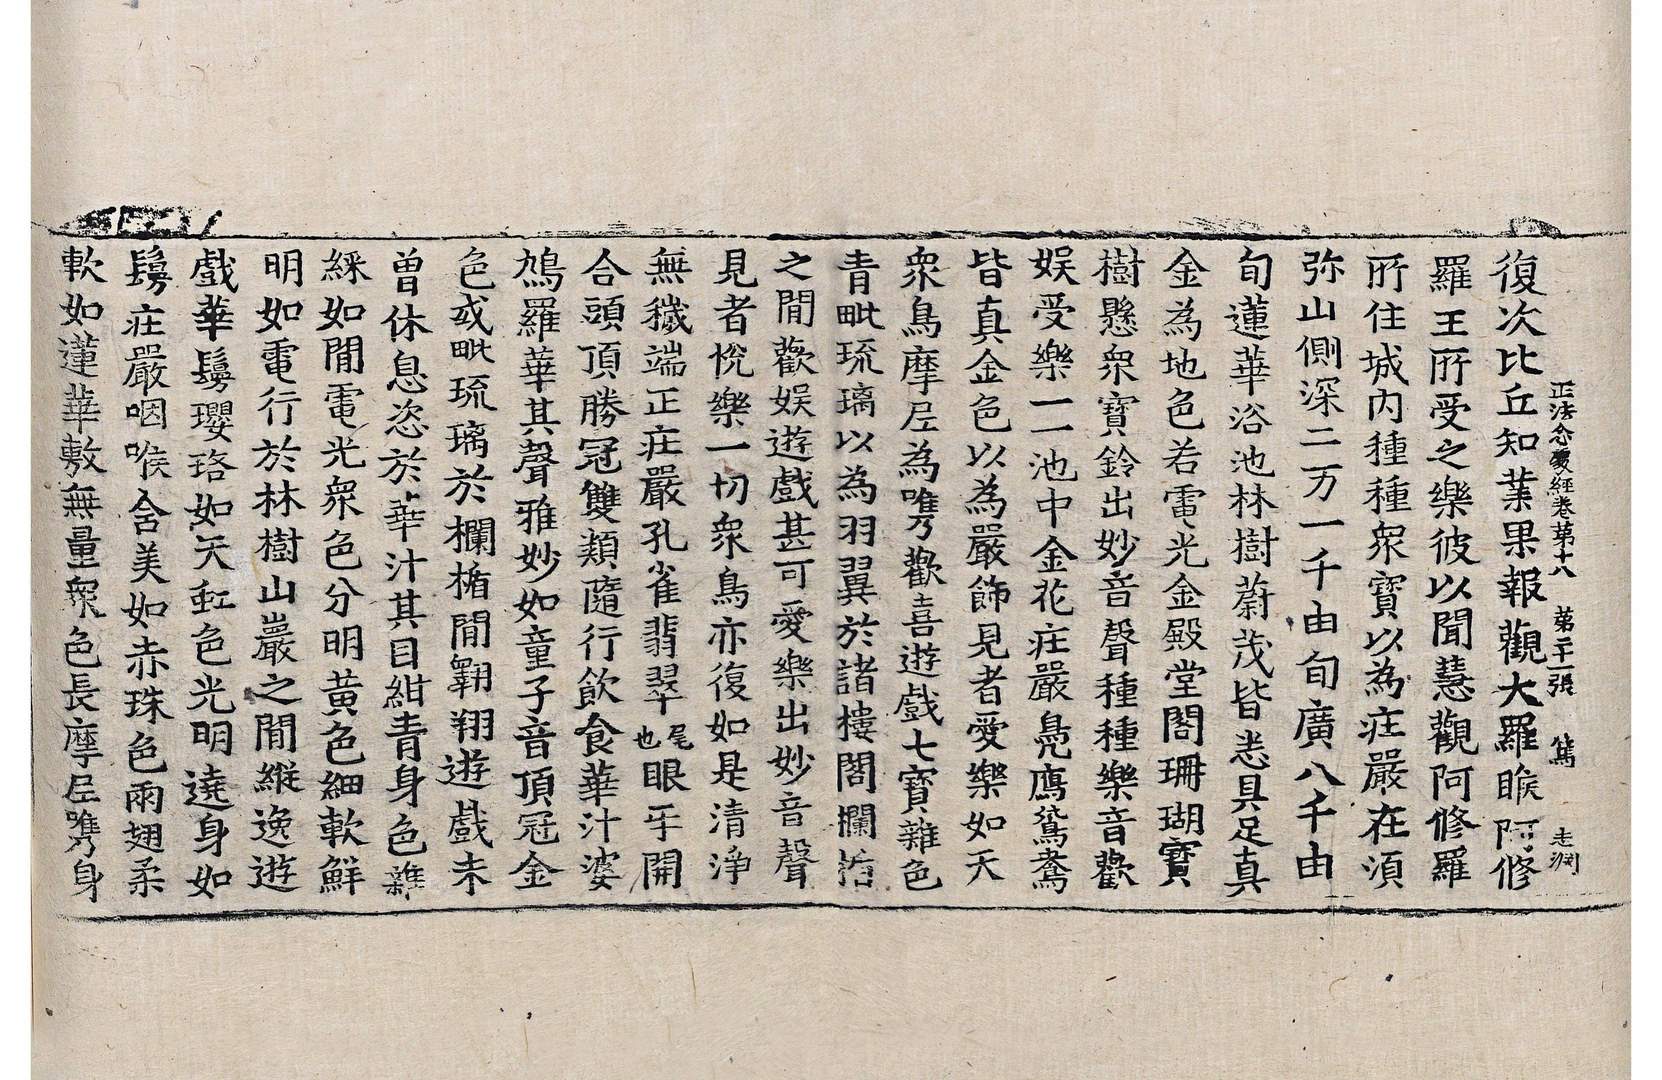 復次比丘知業果報觀大羅睺阿修
正法念處經卷第十八 第二十一張 篤 志渕
羅王所受之樂彼以聞慧觀阿修羅
所住城內種種衆寶以為莊嚴在須
弥山側深二万一千由旬廣八千由
旬蓮華浴池林樹蔚茂皆悉具足真
金為地色若電光金殿堂閣珊瑚寶
樹懸衆寶鈴出妙音聲種種樂音歡
娛受樂一一池中金花莊嚴鳧鴈鴛鴦
皆真金色以為嚴飾見者愛樂如天
衆鳥摩尼為㗦歡喜遊戲七寶雜色
青毗琉璃以為羽翼於諸樓閣欄楯
之閒歡娛遊戲甚可愛樂出妙音聲
見者悅樂一切衆鳥亦復如是清淨
無穢端正莊嚴孔雀翡翠尾也眼牙開
合頭頂勝冠雙類隨行飲食華汁婆
鳩羅華其聲雅妙如童子音頂冠金
色或毗琉璃於欄楯閒翱翔遊戲未
曾休息恣於華汁其目紺青身色雜
綵如閒電光衆色分明黃色細軟鮮
明如電行於林樹山巖之閒縱逸遊
戲華鬘瓔珞如天虹色光明遶身如
鬘莊嚴咽喉含美如赤珠色兩翅柔
軟如蓮華敷無量衆色長摩尼㗦身